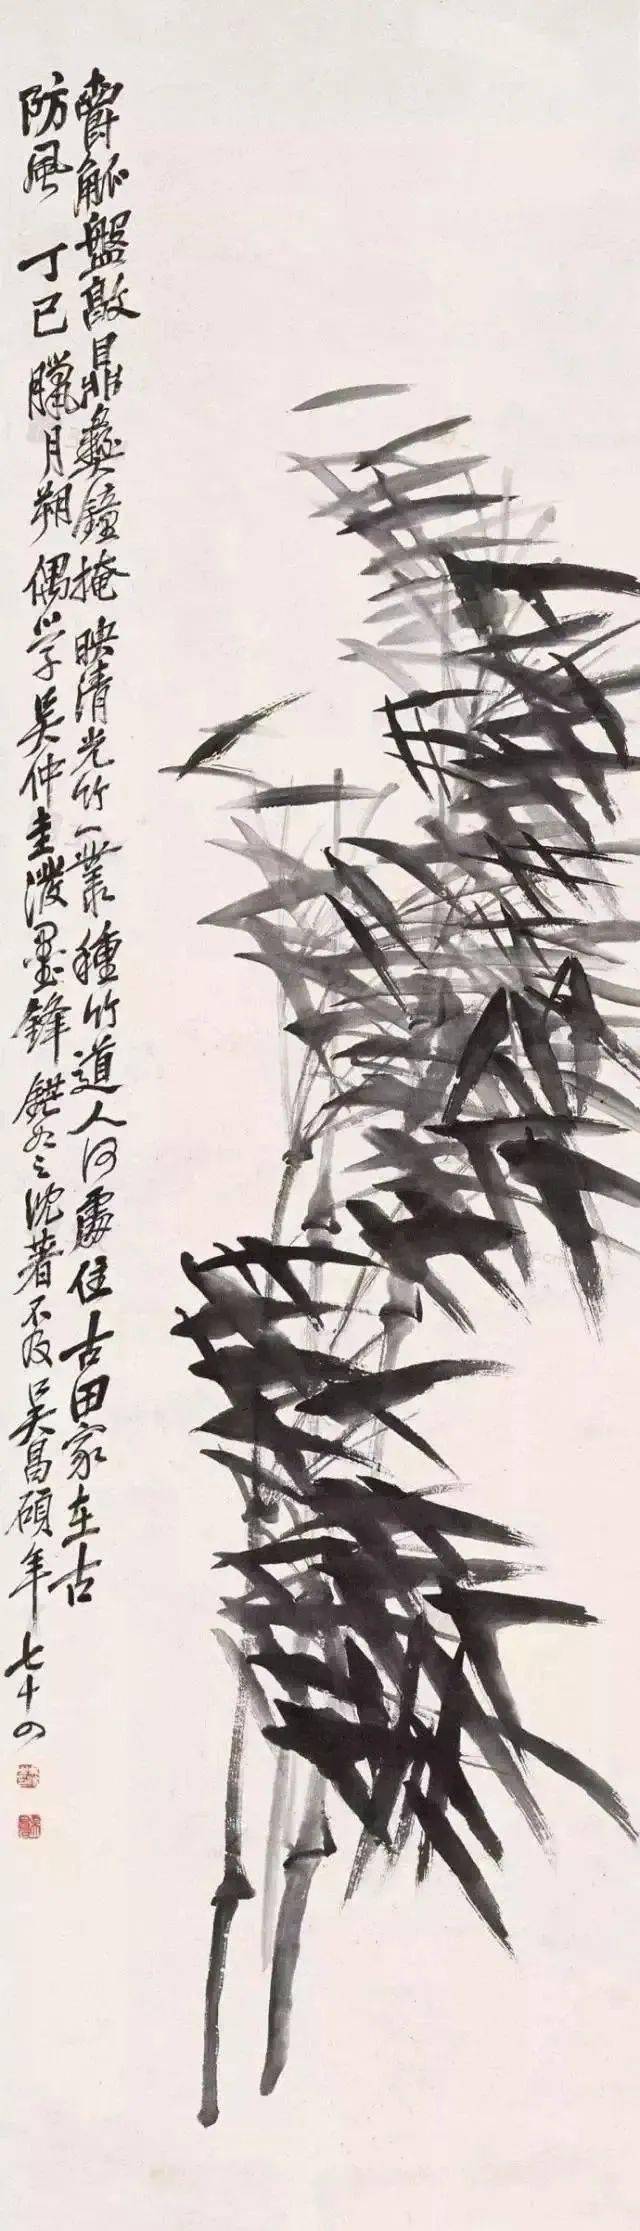 爵觚盤敦鼎彝鐘掩映清光竹一叢種竹道人何處住古田家在古
防風 丁巳臘月朔偶學吳仲圭潑墨鋒錯처沈著不及吳昌碩年七十四